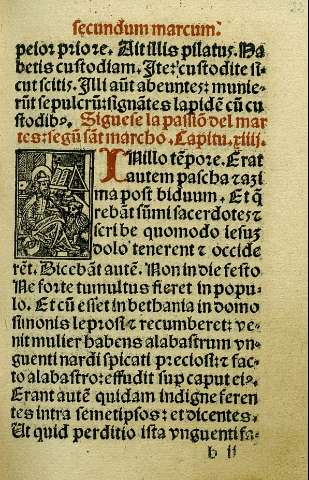 secundum marcum.
peior priore. Ait illis pilatus. Ha-
betis custodiam. Ite: custodite si-
cut scitis. Illi aūt abeuntes: munie-
rūt sepulcrū: signātes lapidē cū cu
stodib9. Siguese la passiō del mar
tes: segū sāt marcho. Capitu. xiiij.
IN illo tēpore. Erat
autem pascha ⁊ azi
ma post biduum. Et q̄
rebāt sūmi sacerdotes ⁊
scribe quomodo iesuz
dolo tenerent ⁊ occide
rēt. Dicebāt autē. Non in die festo
Ne forte tumultus fieret in popu-
lo. Et cū esset in bethania in domo
simonis leprosi ⁊ recumberet: ve-
nit mulier habens alabastrum vn-
guenti nardi spicati preciosi: ⁊ fac-
to alabastro: effudit sup caput ei9.
Erant autē quidam indigne feren
tes intra semetipsos: et dicentes.
Ut quid perditio ista vnguenti fa-
b ij